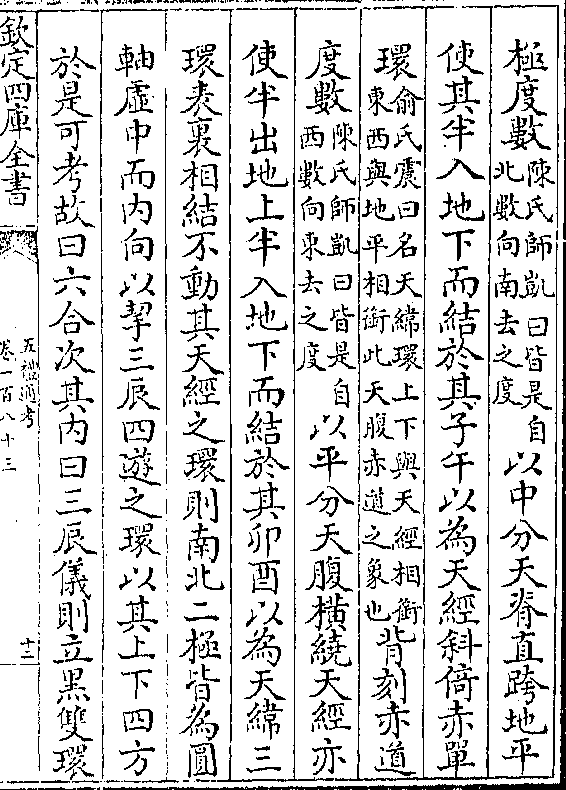 極度數陳氏師凱曰皆是自北數向南去之度以中分天脊直跨地平
使其半入地下而結於其子午以為天經斜倚赤單
環俞氏震曰名天緯環上下與天經相銜東西與地平相銜此天腹赤道之象也背刻赤道
度數陳氏師凱曰皆是自西數向東去之度以平分天腹橫繞天經亦
使半出地上半入地下而結於其卯酉以為天緯三
環表裏相結不動其天經之環則南北二極皆為圓
軸虛中而內向以挈三辰四遊之環以其上下四方
於是可考故曰六合次其內曰三辰儀則立黑雙環
欽定四庫全書
五禮通考
卷一百八十三
十二